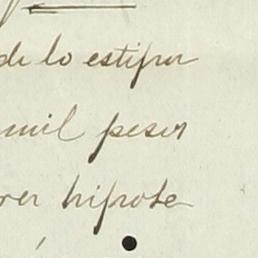 de lo estipu
mil pesos
rer hipote